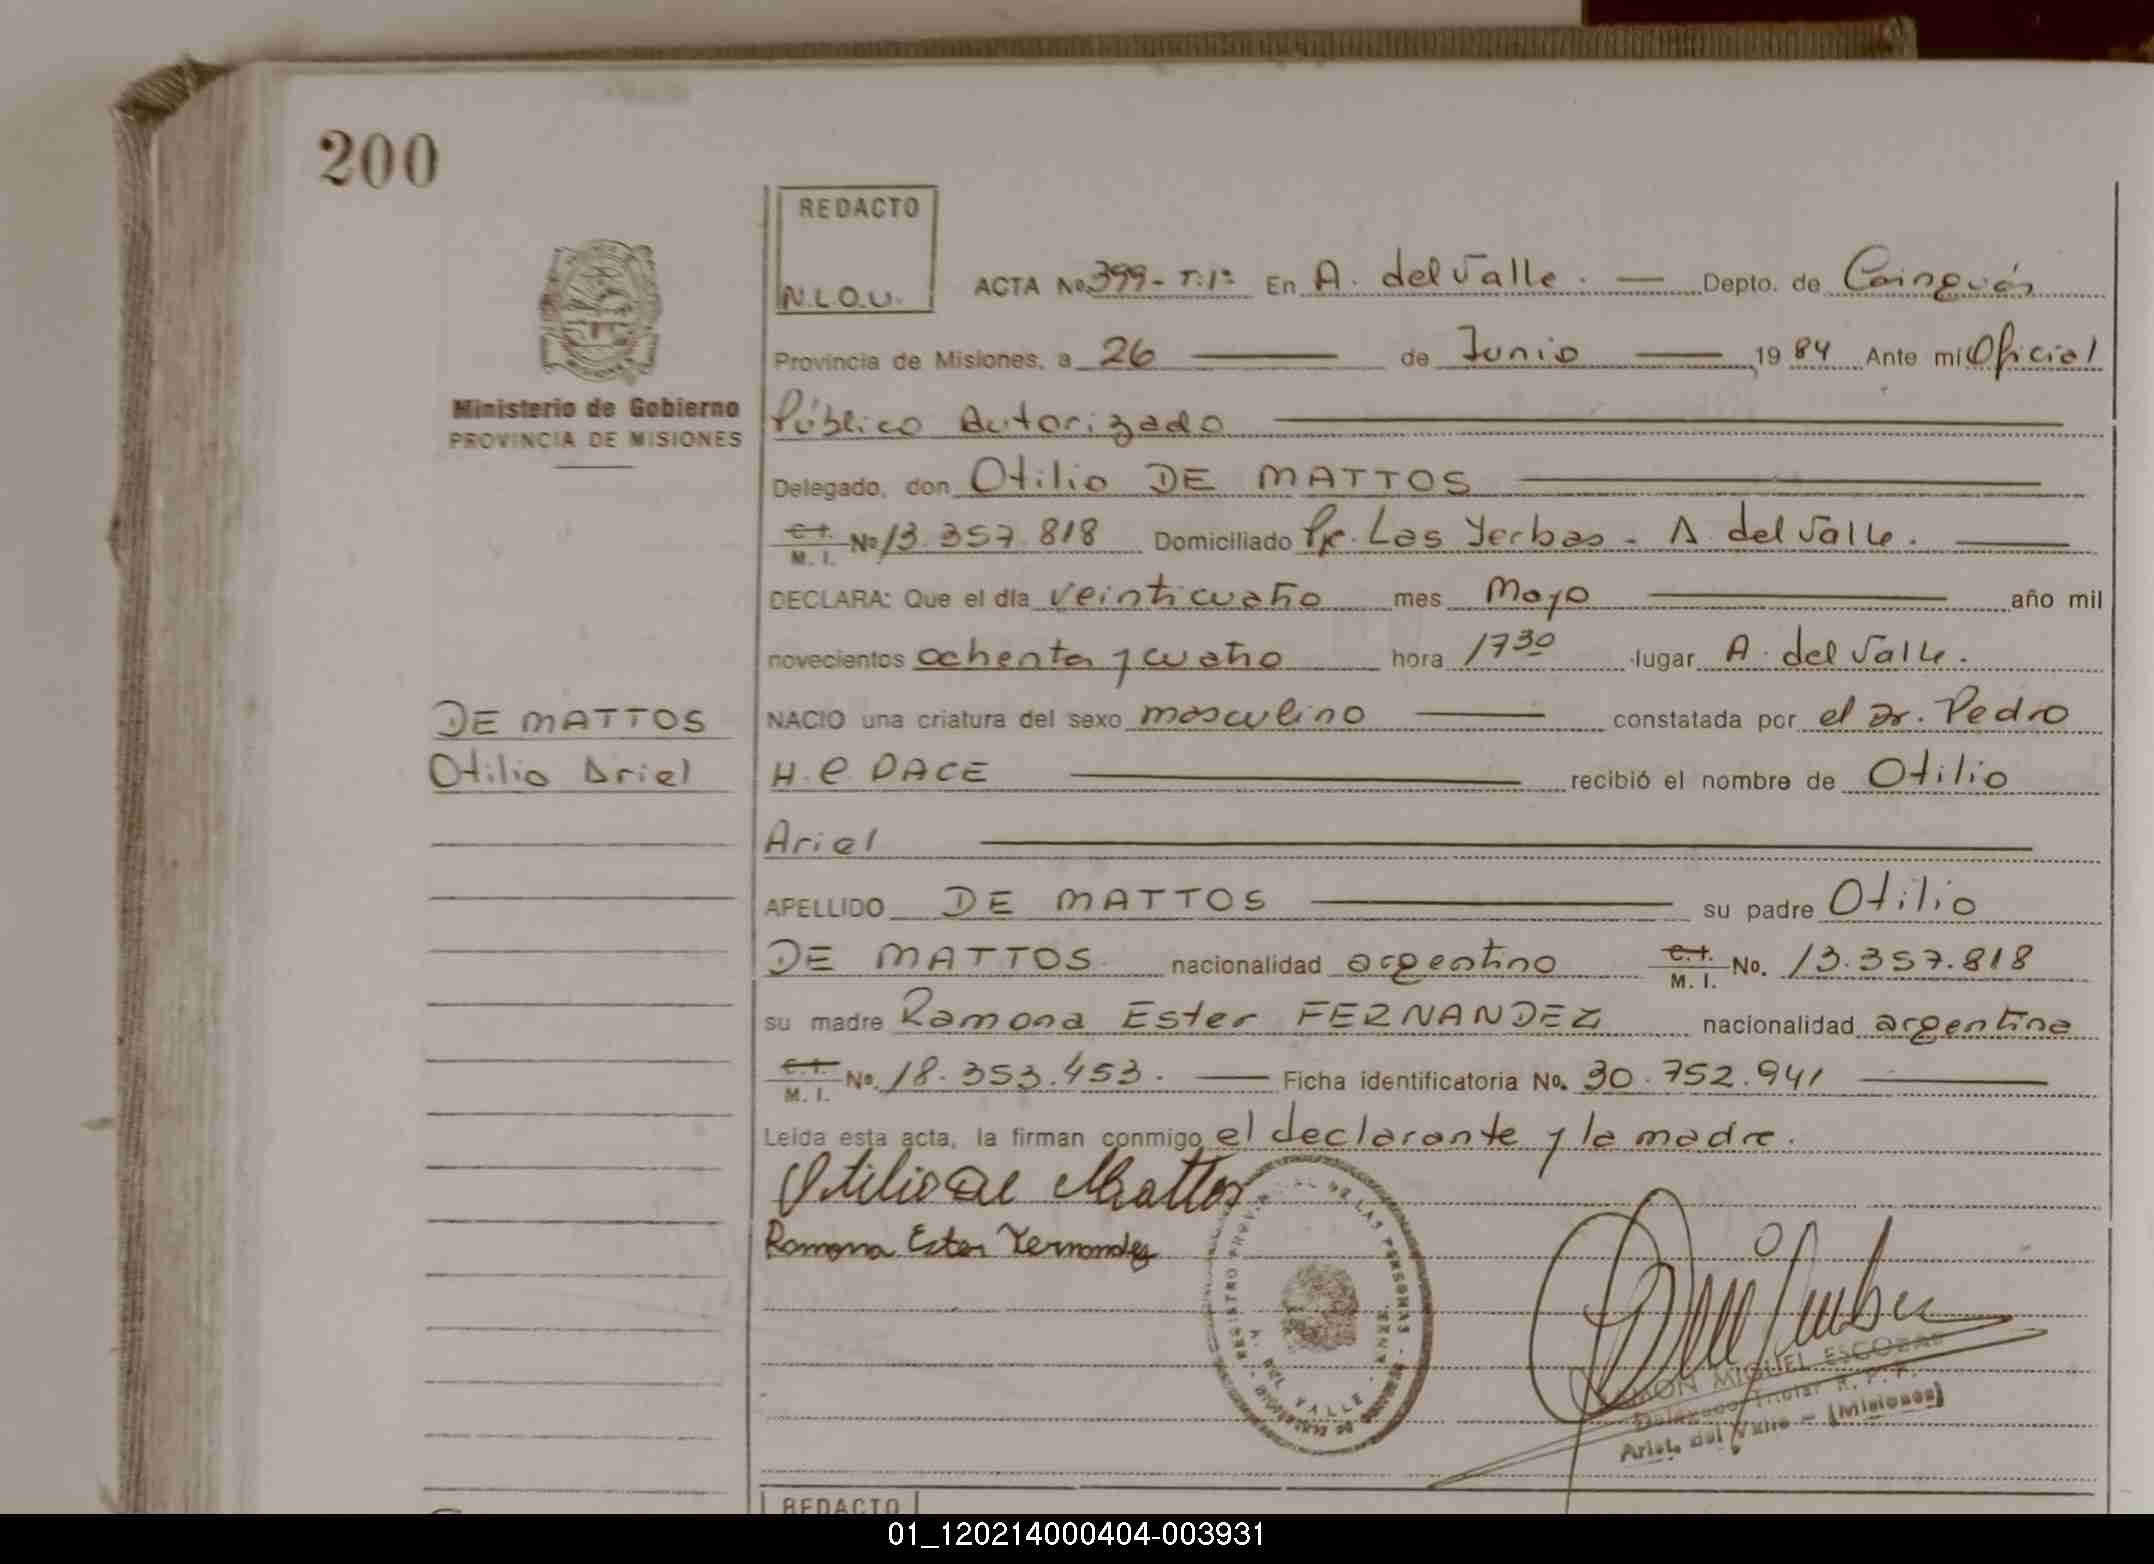 200
REDACTO
N.L.O.U.
ACTA No. 399- T:1º En A. del Valle. Depto. de Cainguás
Provincia de Misiones, a 26 de Junio 19 84 Ante mí Oficial
Ministerio de Gobierno
PROVINCIA DE MISIONES
Público Autorizado
Delegado, don Otilio DE MATTOS
C.I. M. I. No 13.357.818 Domiciliado Pje. Las Yerbas - A. del Valle.
DECLARA: Que el día veinticuatro mes Mayo año mil
novecientos ochenta y cuatro hora 17 30 lugar A. del Valle.
DE MATTOS
Otilio Ariel
NACIO una criatura del sexo masculino constatada por el Dr. Pedro
H. DACE recibió el nombre de Otilio
Ariel
APELLIDO DE MATTOS su padre Otilio
DE MATTOS. nacionalidad argentino C.I. M. I. No. 13.357.818
su madre Ramona Ester FERNANDEZ nacionalidad argentina
C.I. M. I. No. 18.353.453. Ficha identificatoria No. 30.752.941
Leída esta acta, la firman conmigo el declarante y la madre.
Otilio De Mattos
Ramona Ester Fernandez
REGISTRO PROVINCIAL DE LAS PERSONAS
A. DEL VALLE
RAMON MIGUEL ESCOBAR
Delegado Titular R. P. P.
Arist. del Valle - (Misiones)
REDACTO
01_120214000404-003931